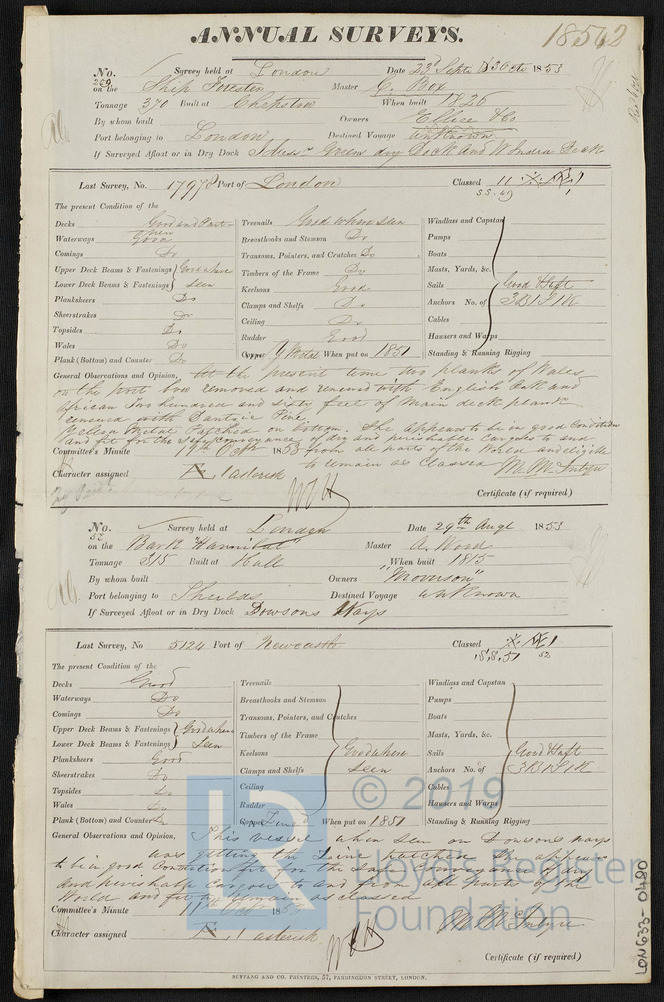 ANNUAL SURVEYS.
18542
No. 269 Survey held at London Date 23d Septr & 3 Octr 1853
on the Ship Forester Master C. Box
Tonnage 370 Built at Chepstow When built 1826
By whom built Owners Ellice & Co
Port belonging to London Destined Voyage unknown
If Surveyed Afloat or in Dry Dock Green dry Dock and W India Dock
Last Survey, No. 17978 Port of London Classed 11
The present Condition of the
Decks Good and Part new Treenails Good where seen Windlass and Capstan
Waterways Good Breasthooks and Stemson Do Pumps
Comings Do Transoms, Pointers, and Crutches Do Boats
Upper Deck Beams & Fastenings Good where Timbers of the Frame Do Masts, Yards, &c.
Lower Deck Beams & Fastenings seen Keelsons Good Sails Good & Suft
Planksheers Do Clamps and Shelfs Do Anchors No. of 3B 1S 1K
Sheerstrakes Do Ceiling Do Cables
Topsides Do Rudder Good Hawsers and Warps
Wales Do Copper Y Metal When put on 1851 Standing & Running Rigging
Plank (Bottom) and Counter Do
General Observations and Opinion, At the present time two planks of Wales
on the port bow removed and renewed with English Oak and
African Two hundred and sixty feet of Main deck plank
renewed with Dantzic Pine
Yellow Metal Patched on bottom. She appears to be in good Condition
and fit for the safe conveyance of dry and perishable Cargoes to and
Committee's Minute 19th Octr 1853 from all parts of the World and eligible
to remain as Classed
Character assigned 1 asterisk
Certificate (if required)
No. 52 Survey held at London Date 29th Augt 1853
on the Bark "Hannibal" Master A. Wood
Tonnage 315 Built at Hull When built 1815
By whom built Owners "Morrison"
Port belonging to Shields Destined Voyage unknown
If Surveyed Afloat or in Dry Dock Dowsons Ways
Last Survey, No 5124 Port of Newcastle Classed
18.8.51 52
The present Condition of the
Decks Good Treenails Windlass and Capstan
Waterways Do Breasthooks and Stemson Pumps
Comings Do Transoms, Pointers, and Crutches Boats
Upper Deck Beams & Fastenings Good where Timbers of the Frame Masts, Yards, &c.
Lower Deck Beams & Fastenings seen Keelsons Good where Sails Good & Suft
Planksheers Good Clamps and Shelfs seen Anchors No. of 3B 1S 1K
Sheerstrakes Do Ceiling Cables
Topsides Do Rudder Hawsers and Warps
Wales Do Copper Zinc When put on 1851 Standing & Running Rigging
Plank (Bottom) and Counter Do
General Observations and Opinion, This vessel when seen on Dowsons ways
was getting the Zinc patched She appears
to be in good Condition fit for the safe conveyance of dry
and perishable Cargoes to and from all parts of the
World and fit to remain as classed
Committee's Minute
Character assigned 1 asterisk
Certificate (if required)
SEYFANG AND CO. PRINTERS, 57, FARRINGDON STREET, LONDON.
LON633-0480
© 2019
Lloyd's Register
Foundation